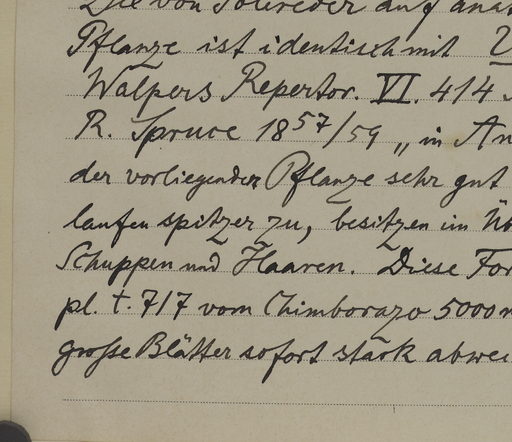 Die von Solereder auf anat
Pflanze ist identisch mit
Walpers Repertor. VI. 414
R. Spruce 1857/59 „in An
der vorliegenden Pflanze sehr gut
laufen spitzer zu, besitzen im Üb
Schuppen und Haaren. Diese For
pl. t. 717 vom Chimborazo 5000 m
große Blätter sofort stark abwei